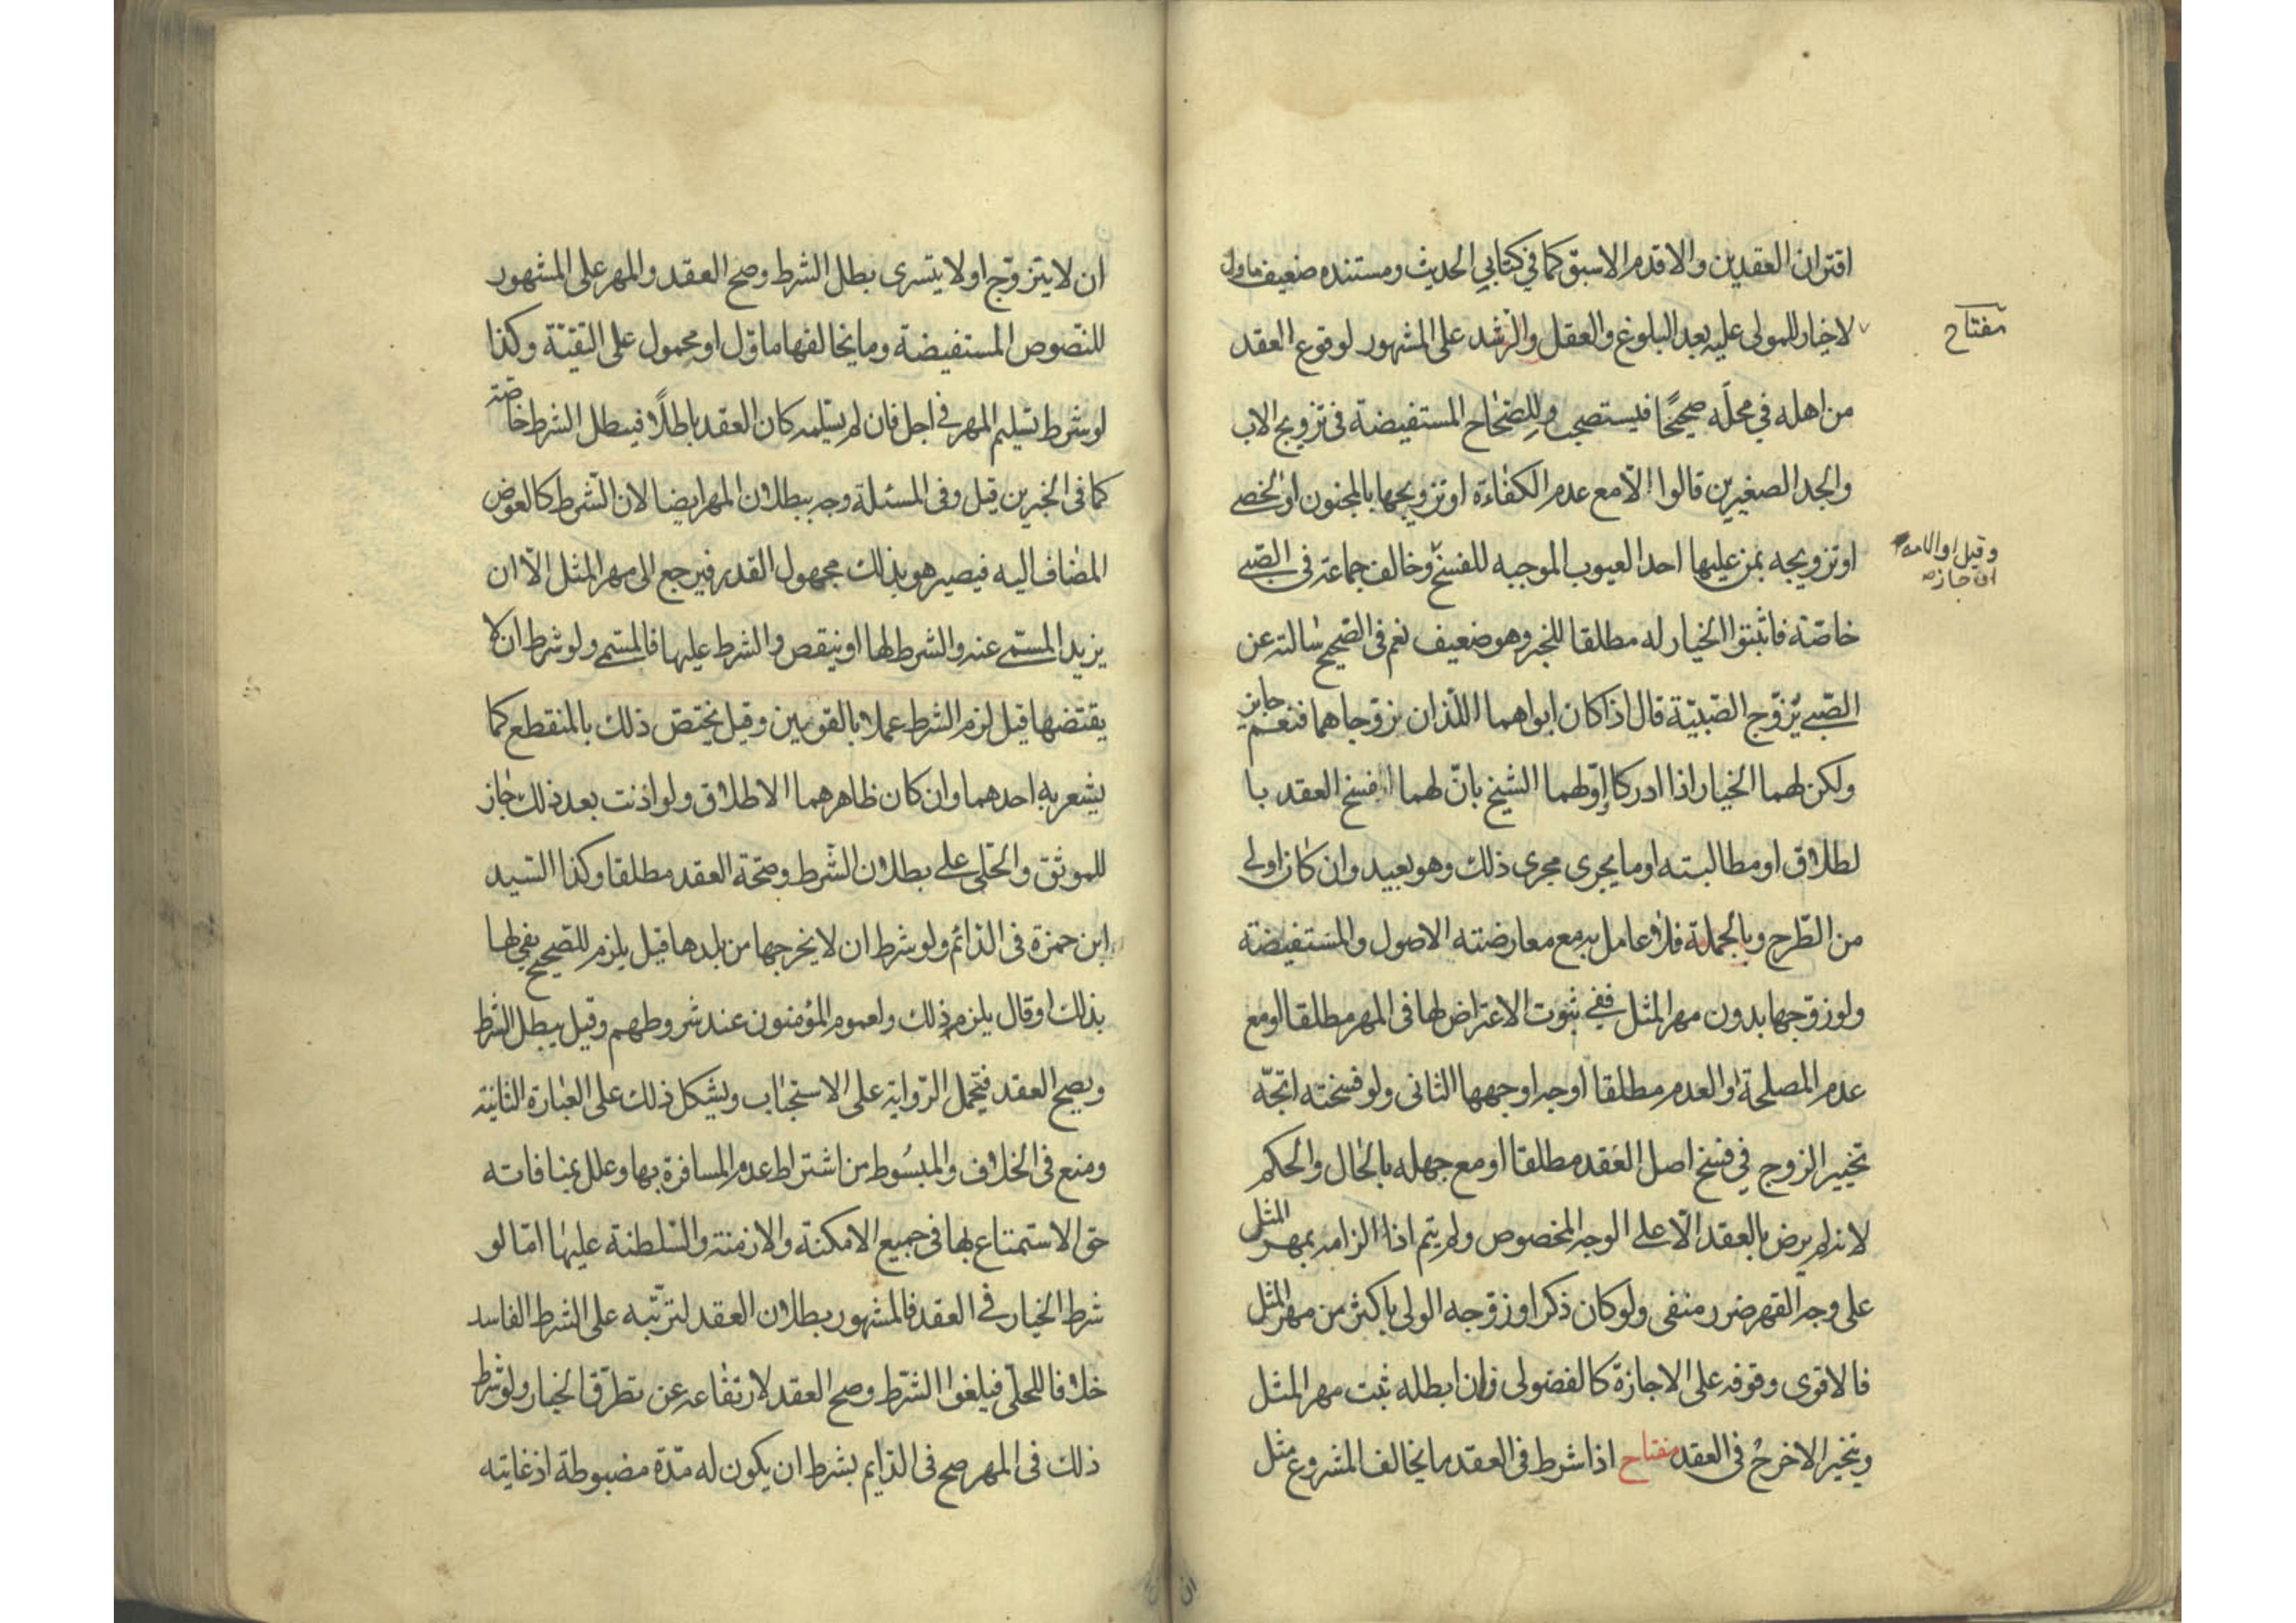 اقتران العقدين والاقدم الاسبق كما في كتابي الحديث ومستنده ضعيف ماول
مفتاح
لا خيار للمولى عليه بعد البلوغ والعقل والرشد على المشهور لوقوع العقد
من اهله في محلّه صحيحًا فيستصحب وللصّحاح المستفيضة في تزويج الاب
والجد الصغيرين قالوا الّا مع عدم الكفاءة او تزويجها بالمجنون او الخصى
او تزويجه بمن عليها احد العيوب الموجبه للفسخ وخالف جماعة فى الصّبى
وقيل او الامة
ان جاز
خاصّة فاثبتوا الخيار له مطلقا للخبر وهو ضعيف نعم فى الصّحيح سالته عن
الصّبى يُزوّج الصّبيّة قال اذا كان ابواهما اللّذان زوّجاهما فنعم جايز
ولكن لهما الخيار اذا ادركا اوّلهما الشيخ بانّ لهما فسخ العقد با
لطلاق او مطالبته او ما يجرى مجرى ذلك وهو بعيد وان كان اولى
من الطّرح وبالجملة فلا عامل به مع معارضته الاصول والمستفيضة
ولو زوّجها بدون مهر المثل ففى ثبوت الاعتراض لها فى المهر مطلقا او مع
عدم المصلحة او العدم مطلقا اوجه اوجهها الثانى ولو فسخته اتجّه
تخيير الزوج في فسخ اصل العقد مطلقا او مع جهله بالحال والحكم
لانه لم يرض بالعقد الّا على الوجه المخصوص ولم يتم اذا الزامه بمهر المثل
على وجه القهر ضرر منفى ولو كان ذكرا وزوّجه الولى باكثر من مهر المثل
فالاقوى وقوفه على الاجازة كالفضولى فان ابطله ثبت مهر المثل
ويتخير الاخر في العقد مفتاح اذا شرط فى العقد ما يخالف المشروع مثل
ان
ان لا يتزوّج او لا يتسرى بطل الشرط وصح العقد والمهر على المشهور
للنّصوص المستفيضة وما يخالفها ماوّل او محمول على التقيّة وكذا
لو شرط تسليم المهر في اجل فان لم يسلّمه كان العقد باطلًا فيبطل الشرط خاصّة
كما فى الخبرين قيل وفى المسئلة وجه ببطلان المهر ايضا لان الشّرط كالعوض
المضاف اليه فيصير هو بذلك مجهول القدر فيرجع الى مهر المثل الّا ان
يزيد المسمّى عنه والشرط لها او ينقص والشرط عليها فالمسمى ولو شرط ان لا
يقتضها قيل لزم الشرط عملا بالقويين وقيل يختصّ ذلك بالمنقطع كما
يشعر به احدهما وان كان ظاهرهما الاطلاق ولو اذنت بعد ذلك جاز
للموثق والحلّى على بطلان الشّرط وصحّة العقد مطلقا وكذا السّيد
ابن حمزة فى الدّائم ولو شرط ان لا يخرجها من بلدها قيل يلزم للصّحيح يفى لها
بذلك او قال يلزم ذلك ولعموم المؤمنون عند شروطهم وقيل يبطل الشرط
ويصح العقد فتحمل الرّواية على الاستحباب ويشكل ذلك على العبارة الثانية
ومنع فى الخلاف والمبسُوط من اشتراط عدم المسافرة بها وعلل بمنافاته
حق الاستمتاع بها فى جميع الامكنة والازمنة والسّلطنة عليها امّا لو
شرط الخيار في العقد فالمشهور بطلان العقد لترتّبه على الشرط الفاسد
خلافا للحلّى فيلغوا الشّرط وصح العقد لارتفاعه عن تطرّق الخيار ولو شرط
ذلك فى المهر صح فى الدّايم بشرط ان يكون له مدّة مضبوطة اذ غايته